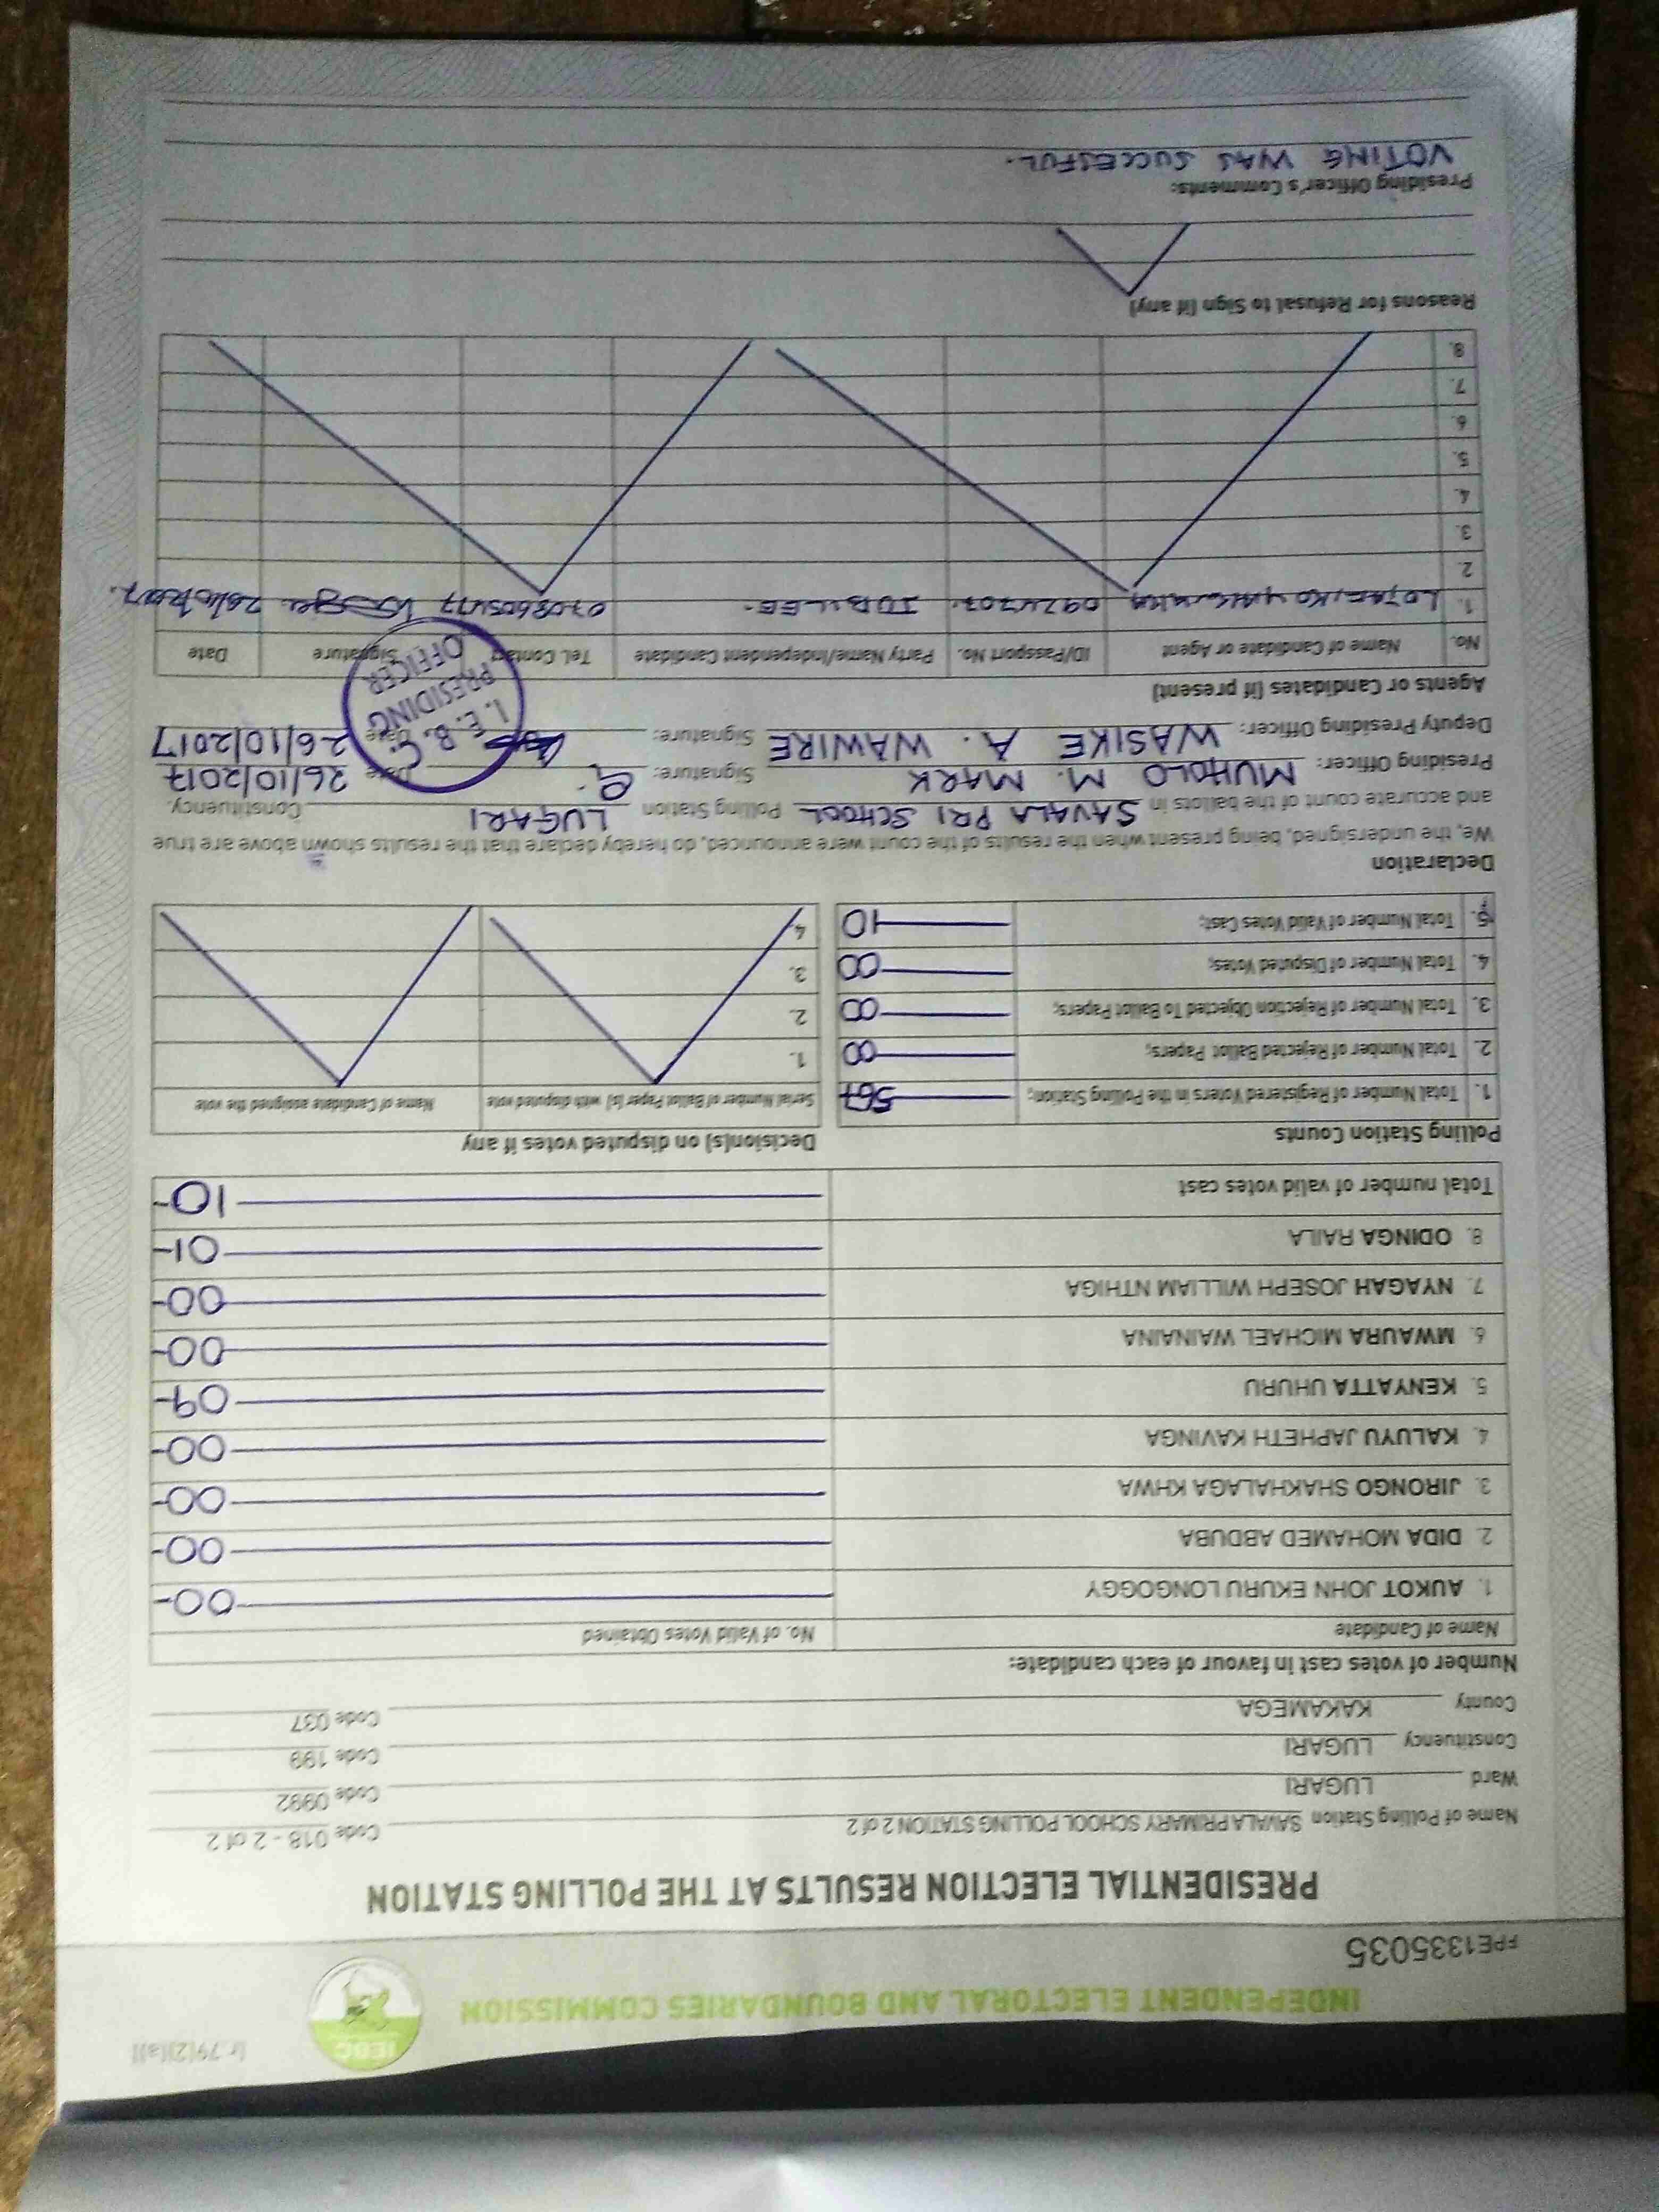 (r.79(2)(a))
IEBC
INDEPENDENT ELECTORAL AND BOUNDARIES COMMISSION
FPE1335035
PRESIDENTIAL ELECTION RESULTS AT THE POLLING STATION
Name of Polling Station SAVALA PRIMARY SCHOOL POLLING STATION 2 of 2 Code 018 - 2 of 2
Ward LUGARI Code 0992
Constituency LUGARI Code 199
County KAKAMEGA Code 037
Number of votes cast in favour of each candidate:
Name of Candidate No. of Valid Votes Obtained
1. AUKOT JOHN EKURU LONGOGGY 00
2. DIDA MOHAMED ABDUBA 00
3. JIRONGO SHAKHALAGA KHWA 00
4. KALUYU JAPHETH KAVINGA 00
5. KENYATTA UHURU 09
6. MWAURA MICHAEL WAINAINA 00
7. NYAGAH JOSEPH WILLIAM NTHIGA 00
8. ODINGA RAILA 01
Total number of valid votes cast 10
Polling Station Counts Decision(s) on disputed votes if any
1. Total Number of Registered Voters in the Polling Station; 567 Serial Number of Ballot Paper (s) with disputed vote Name of Candidate assigned the vote
2. Total Number of Rejected Ballot Papers; 00 1.
3. Total Number of Rejection Objected To Ballot Papers; 00 2.
4. Total Number of Disputed Votes; 00 3.
5. Total Number of Valid Votes Cast; 10 4
Declaration
We, the undersigned, being present when the results of the count were announced, do hereby declare that the results shown above are true
and accurate count of the ballots in SAVALA PRI SCHOOL Polling Station LUGARI Constituency.
Presiding Officer: MUHOLO M. MARK Signature: Date 26/10/2017
Deputy Presiding Officer: WASIKE A. WAWIRE Signature: Date 26/10/2017
I. E. B. C.
PRESIDING
OFFICER
Agents or Candidates (if present)
No. Name of Candidate or Agent ID/Passport No. Party Name/Independent Candidate Tel. Contact Signature Date
1. JUBILEE.
2.
3.
4.
5.
6.
7.
8.
Reasons for Refusal to Sign (if any)
Presiding Officer's Comments:
VOTING WAS SUCCESFUL.